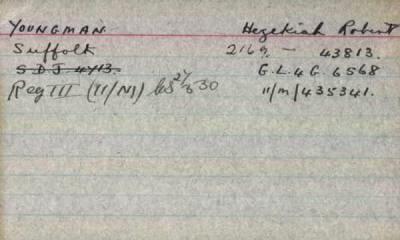 YOUNGMAN. Hezekiah Robert
Suffolk 2169 — 43813.
S.D.J 4713. G.L.4 G. 6568
Reg III (11/M) 27/3/30 11/M/435341.